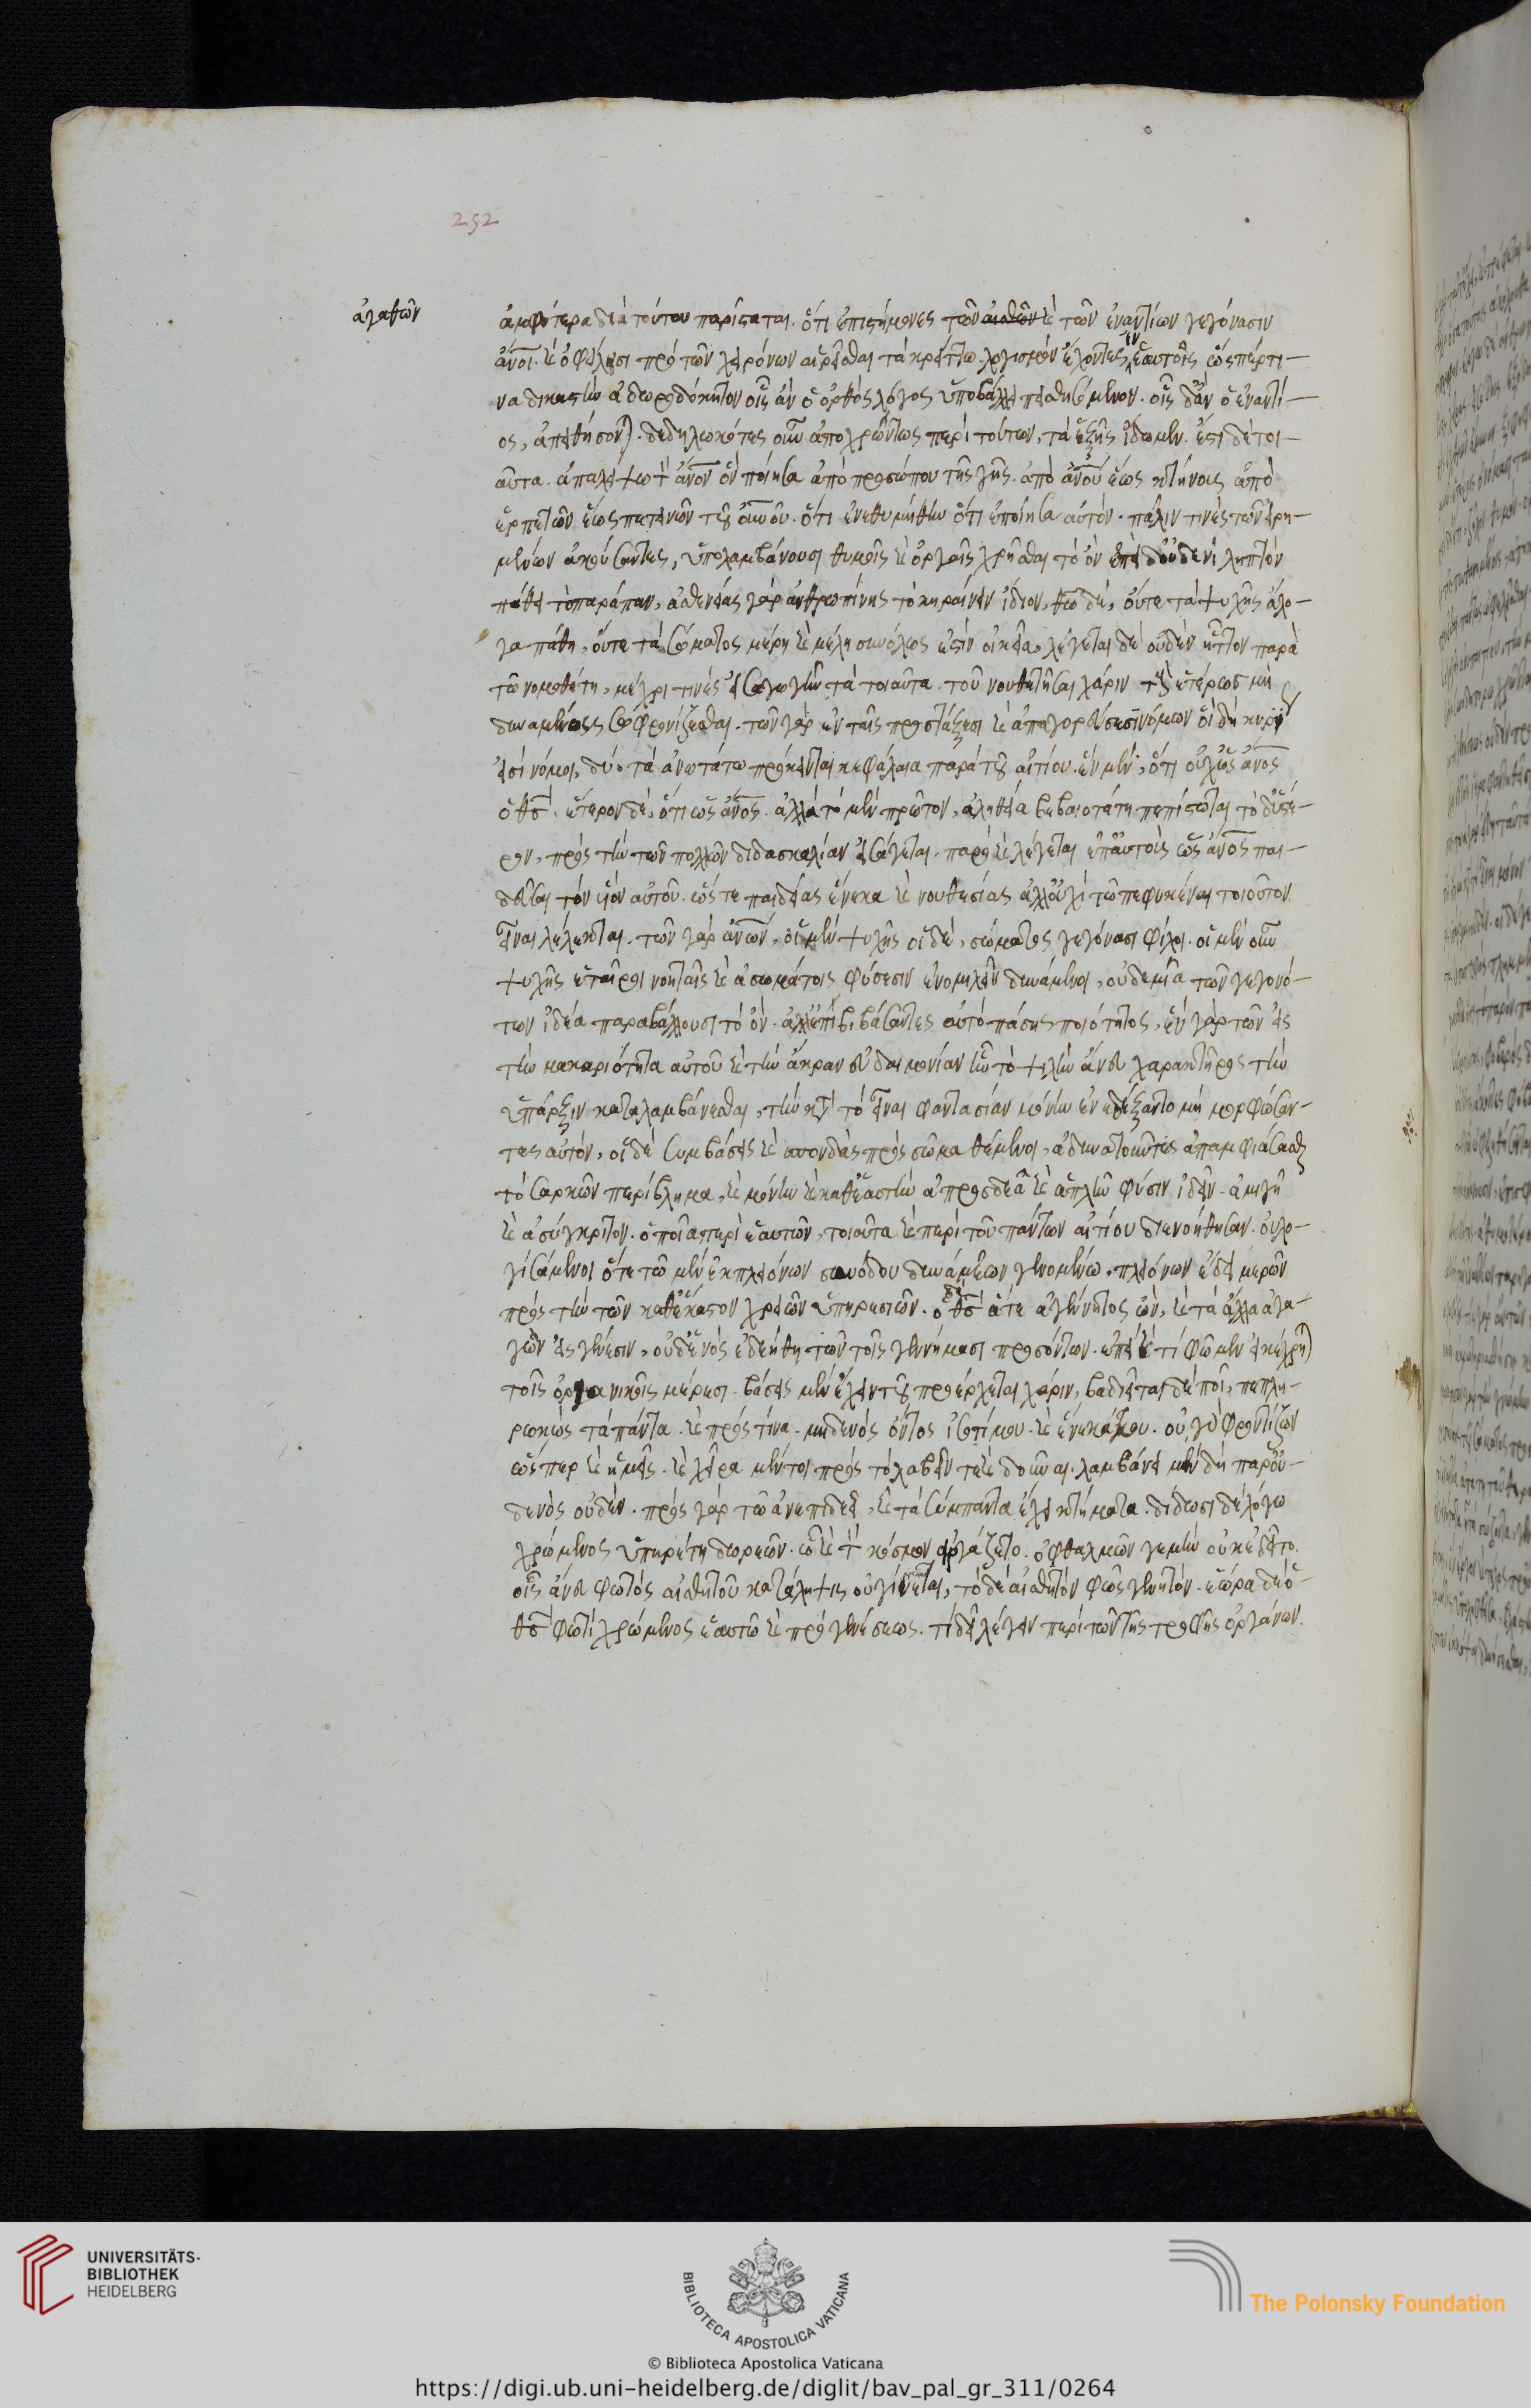 252
ἀγαθῶν
ἀμφότερα διὰ τούτου παρίσταται. ὅτι ἐπιστήμονες τῶν ἀγαθῶν καὶ τῶν ἐναντίων γεγόνασιν
ἄνοι. καὶ ὀφείλουσι πρὸ τῶν χειρόνων αἱρεῖσθαι τὰ κρείττω. λογισμὸν ἔχοντες ἐν ἑαυτοῖς ὥσπέρ τι-
να δικαστὴν ἀδωροδόκητον οἷς ἂν ὁ ὀρθὸς λόγος ὑποβάλλῃ πεισθησόμενον. οἷς δ' ἂν ὁ ἐναντί-
ος, ἀπειθήσοντα. δεδηλωκότες οὖν ἀποχρώντως περὶ τούτων, τὰ ἑξῆς ἴδωμεν. ἔστι δὲ τοι-
αῦτα. ἀπαλείψω τὸν ἄνον ὃν ἐποίησα ἀπὸ προσώπου τῆς γῆς. ἀπὸ ἀνου ἕως κτήνους ἀπὸ
ἑρπετῶν ἕως πετεινῶν τοῦ οὐνοῦ. ὅτι ἐνεθυμήθην ὅτι ἐποίησα αὐτόν. πάλιν τινὲς τῶν εἰρη-
μένων ἀκούσαντες, ὑπολαμβάνουσι θυμοῖς καὶ ὀργαῖς χρῆσθαι τὸ ὄν ἔστι δ' οὐδενὶ ληπτὸν
πάθει τὸ παράπαν, ἀσθενείας γὰρ ἀνθρωπίνης τὸ κηραίνειν ἴδιον, θεῷ δὲ, οὔτε τὰ ψυχῆς ἄλο-
γα πάθη, οὔτε τὰ σώματος μέρη καὶ μέλη συνόλως ἐστὶν οἰκεῖα, λέγεται δὲ οὐδὲν ἧττον παρὰ
τῷ νομοθέτῃ, μέχρι τινὸς εἰσαγωγῆς τὰ τοιαῦτα. τοῦ νουθετῆσαι χάριν τοὺς ἑτέρως μὴ
δυναμένους σωφρονίζεσθαι. τῶν γὰρ ἐν ταῖς προστάξεσι καὶ ἀπαγορεύσεσι νόμων οἳ δὴ κυρίως
εἰσὶ νόμοι, δύο τὰ ἀνωτάτω πρόκειται κεφάλαια παρὰ τοῦ αἰτίου. ἓν μὲν, ὅτι οὐχ ὡς ἄνος
ὁ θς. ἕτερον δὲ, ὅτι ὡς ἄνος. ἀλλὰ τὸ μὲν πρῶτον, ἀληθείᾳ βεβαιοτάτῃ πεπίστωται τὸ δ' ὕστε-
ρον, πρὸς τὴν τῶν πολλῶν διδασκαλίαν εἰσάγεται. παρὸ καὶ λέγεται ἐπ' αὐτοῖς ὡς ἄνος παι-
δεῦσαι τὸν υἱὸν αὐτοῦ. ὥστε παιδείας ἕνεκα καὶ νουθεσίας ἀλλ' οὐχὶ τῷ πεφυκέναι τοιοῦτον
εἶναι λέλεκται. τῶν γὰρ ἀνων, οἱ μὲν ψυχῆς οἱ δὲ, σώματος γεγόνασι φίλοι. οἱ μὲν οὖν
ψυχῆς ἑταῖροι νοηταῖς καὶ ἀσωμάτοις φύσεσιν ἐνομιλεῖν δυνάμενοι, οὐδεμιᾷ τῶν γεγονό-
των ἰδέᾳ παραβάλλουσι τὸ ὄν. ἀλλ' ἐπιβιβάσαντες αὐτὸ πάσης ποιότητος, ἓν γὰρ τῶν εἰς
τὴν μακαριότητα αὐτοῦ καὶ τὴν ἄκραν εὐδαιμονίαν ἦν τὸ ψιλὴν ἄνευ χαρακτῆρος τὴν
ὕπαρξιν καταλαμβάνεσθαι, τὴν κατὰ τὸ εἶναι φαντασίαν μόνην ἐνεδέξαντο μὴ μορφώσαν-
τες αὐτόν, οἱ δὲ συμβάσεις καὶ σπονδὰς πρὸς σῶμα θέμενοι, ἀδυνατοῦντες ἀπαμφιάσασθαι
τὸ σαρκῶν περίβλημα, καὶ μόνην καὶ καθ' ἑαυτὴν ἀπροσδεᾶ καὶ ἁπλῆν φύσιν ἰδεῖν ἀμιγῆ
καὶ ἀσύγκριτον. ὁποῖα περὶ ἑαυτῶν, τοιαῦτα καὶ περὶ τοῦ πάντων αἰτίου διενοήθησαν. οὐ λο-
γισάμενοι ὅτι τῷ μὲν ἐκ πλειόνων συνόδου δυνάμεων γενομένῳ, πλειόνων ἔδει μερῶν
πρὸς τὴν τῶν καθ' ἕκαστον χρειῶν ὑπηρεσιῶν. ὁ δὲ θς ἅτε ἀγένητος ὢν, καὶ τὰ ἄλλα ἀγα-
γὼν εἰς γένεσιν, οὐδενὸς ἐδεήθη τῶν τοῖς γεννήμασι προσόντων. ἐπεὶ καὶ τί φῶμεν εἰ κέχρηται
τοῖς ὀργανικοῖς μέρεσι. βάσεις μὲν ἔχειν τοῦ προέρχεται χάριν, βαδιεῖται δὲ ποῖ, πεπλη-
ρωκὼς τὰ πάντα. καὶ πρὸς τίνα. μηδενὸς ὄντος ἰσοτίμου. καὶ ἕνεκα του. οὐ γὰρ φροντίζων
ὥσπερ καὶ ἡμεῖς. καὶ χεῖρα μέντοι πρὸς τὸ λαβεῖν τε καὶ δοῦναι. λαμβάνει μὲν δὴ παρ' οὐ-
δενὸς οὐδέν. πρὸς γὰρ τῷ ἀνεπιδεεῖ, καὶ τὰ σύμπαντα ἔχει κτήματα. δίδωσι δὲ λόγῳ
χρώμενος ὑπηρέτῃ δωρεῶν. ᾧ καὶ τὸν κόσμον εἰργάζετο. ὀφθαλμῶν γε μὴν οὐκ ἐδεῖτο.
οἷς ἄνευ φωτὸς αἰσθητοῦ κατάληψις οὐ γίνεται, τὸ δὲ αἰσθητὸν φῶς γενητόν. ἑώρα δὲ ὁ
θς φωτὶ χρώμενος ἑαυτῷ καὶ πρὸ γενέσεως. τί δεῖ λέγειν περὶ τῶν τῆς τροφῆς ὀργάνων.
UNIVERSITÄTS-
BIBLIOTHEK
HEIDELBERG
BIBLIOTECA APOSTOLICA VATICANA
The Polonsky Foundation
© Biblioteca Apostolica Vaticana
https://digi.ub.uni-heidelberg.de/diglit/bav_pal_gr_311/0264